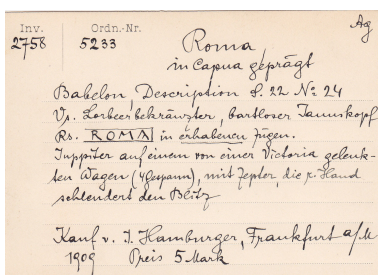 Inv. Ordn.-Nr. Ag
2758 5233 Roma
in Capua geprägt
Babelon, Description S. 22 No 24
Vs. Lorbeerbekränzter, bartloser Januskopf
Rs. ROMA in erhabenen Zügen.
Juppiter auf einem von einer Victoria gelenk-
ten Wagen (4gespann), mit Zepter, die r. Hand
schleudert den Blitz
Kauf v. J. Hamburger, Frankfurt a/M
1909 Preis 5 Mark